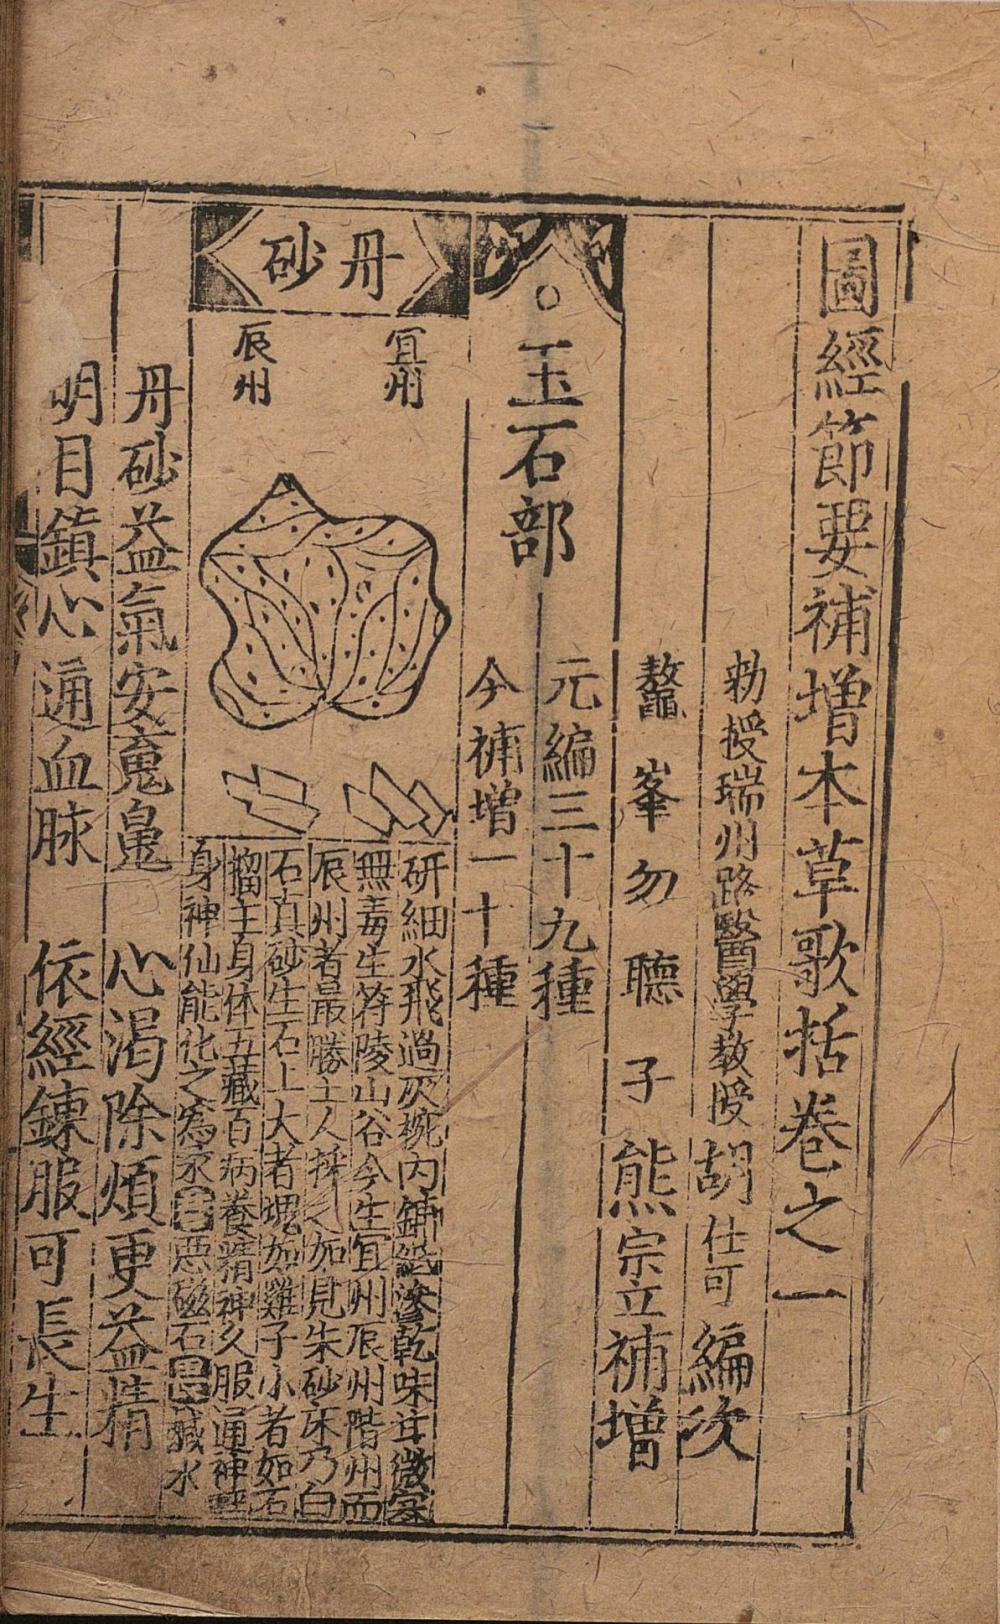 圖經節要補增本草歌括卷之一
勑授瑞州路醫學教授胡仕可編次
鼇峯勿聽子熊宗立補增
○玉石部
元編三十九種
今補增一十種
丹砂
宜州
辰州
研細水飛過灰椀內鋪紙滲乾味甘微寒
無毒生符陵山谷今生宜州辰州階州而
辰州者最勝土人採之如見朱砂床乃白
石真砂生石上大者塊如雞子小者如石
榴主身体五藏百病養精神久服通神
身神仙能化之為汞惡磁石畏醎水
丹砂益氣安䰟魄 心渴除煩更益精
明目鎮心通血脉 依經鍊服可長生